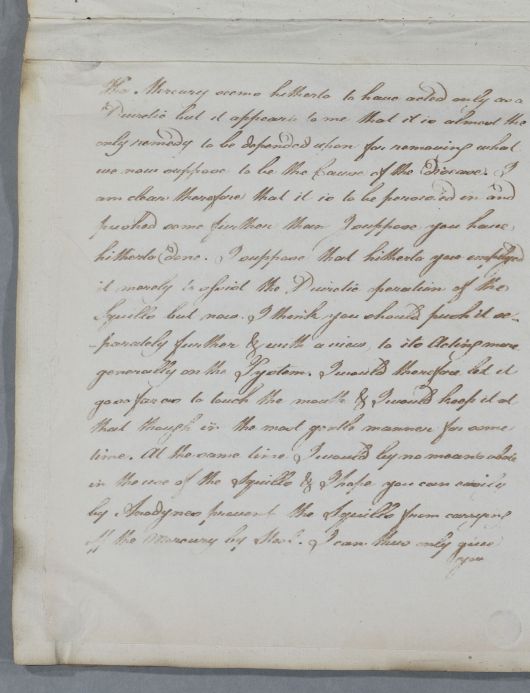 The Mercury seems hitherto to have acted only as a
Diuretic but it appears to me that it is almost the
only remedy to be depended upon for removing what
we now suppose to be the Cause of the Disease. I
am clear therefore that it is to be persisted in and
pushed some further than I suppose you have
hitherto done. I suppose that hitherto you employed
it merely to assist the Diuretic operation of the
Squills but now I think you should push it se-
-parately further & with a view to its Acting more
generally on the System. I would therefore let it
go so far as to touch the mouth & I would keep it at
that though in the most gentle manner for some
time. At the same time I would by no means
in the use of the Squills & I hope you can easily
by Anodynes prevent the Squills from carrying
off the Mercury by Stool. I can thus only give
you